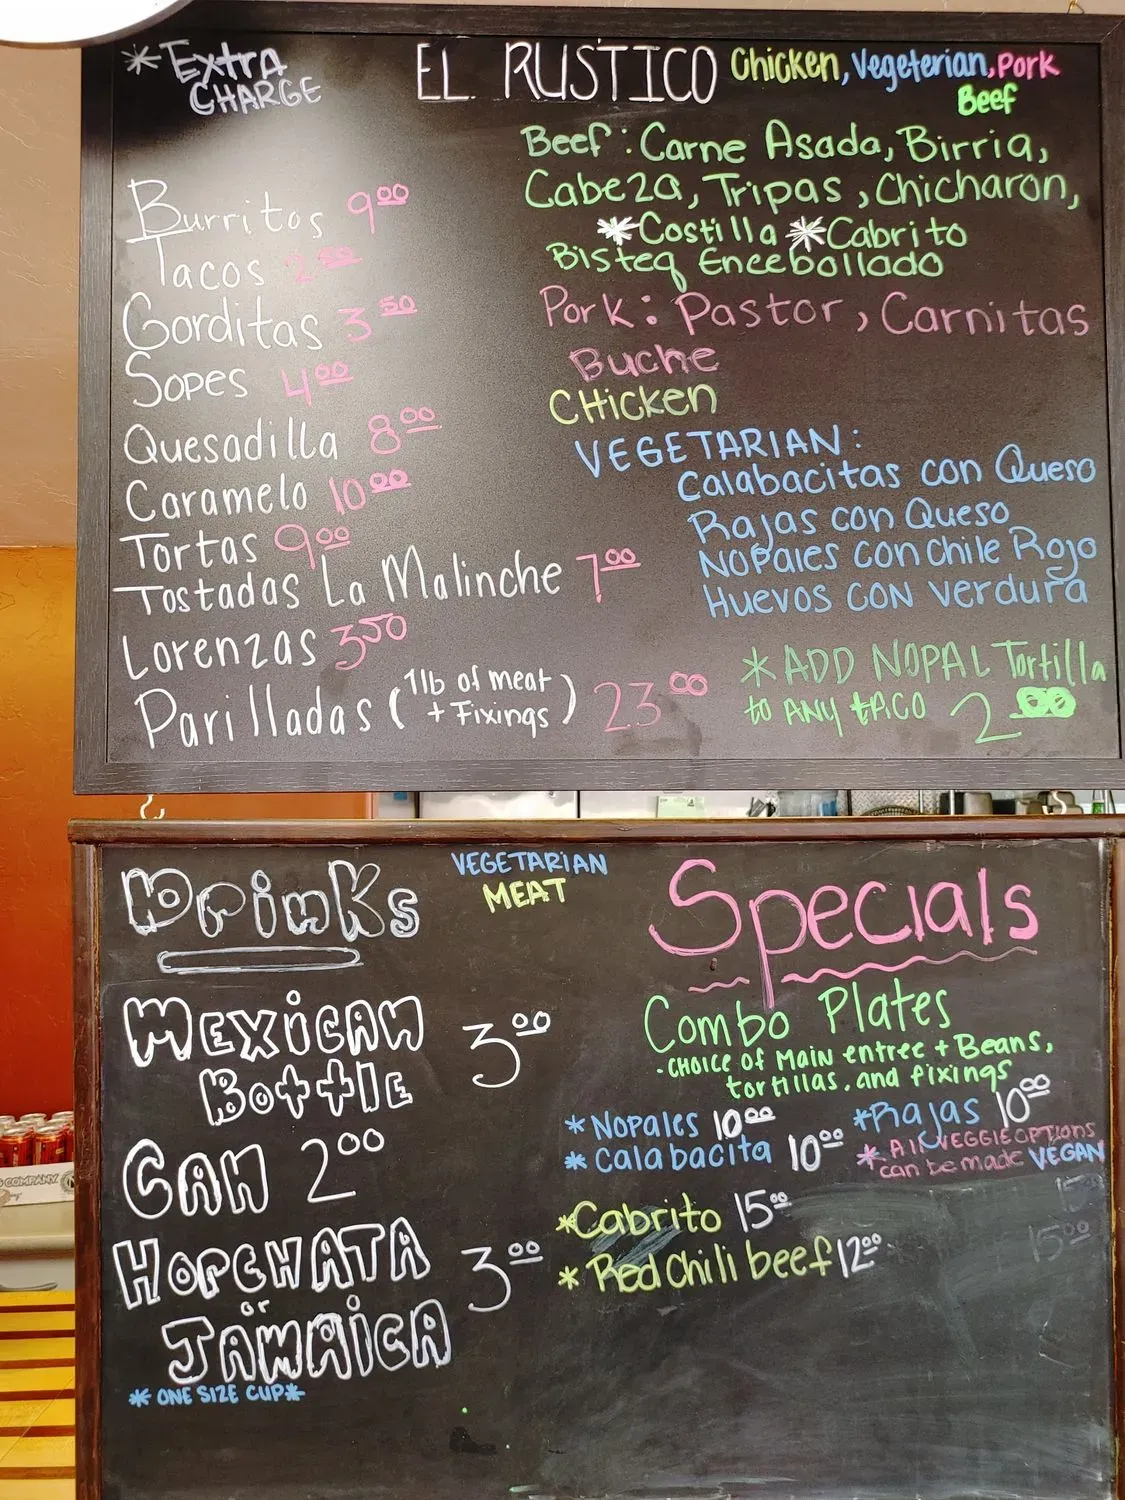 *Extra
CHARGE
EL RUSTICO
Chicken, Vegeterian, Pork
Beef
Burritos 9.00
Tacos 2.50
Gorditas 3.50
Sopes 4.00
Quesadilla 8.00
Caramelo 10.00
Tortas 9.00
Tostadas La Malinche 7.00
Lorenzas 3.50
Parilladas (1lb of meat + Fixings) 23.00
Beef: Carne Asada, Birria,
Cabeza, Tripas, Chicharon,
*Costilla *Cabrito
Bisteq Encebollado
Pork: Pastor, Carnitas
Buche
CHicken
VEGETARIAN:
Calabacitas con Queso
Rajas con Queso
Nopales con Chile Rojo
Huevos con verdura
*ADD NOPAL Tortilla
to ANY tACO 2.00
Drinks
MEXiCAN
Bottle 3.00
CAN 2.00
HORCHATA
or
JAMAiCA 3.00
* ONE SIZE CUP*
VEGETARIAN
MEAT
Specials
Combo Plates
- CHOICE of MAiN entree + Beans,
tortillas, and fixings
*Nopales 10.00 *Rajas 10.00
*Calabacita 10.00
*All VEGGIE OPTIONS
can be made VEGAN
*Cabrito 15.00
* Red Chili beef 12.00
15.00
COMPANY